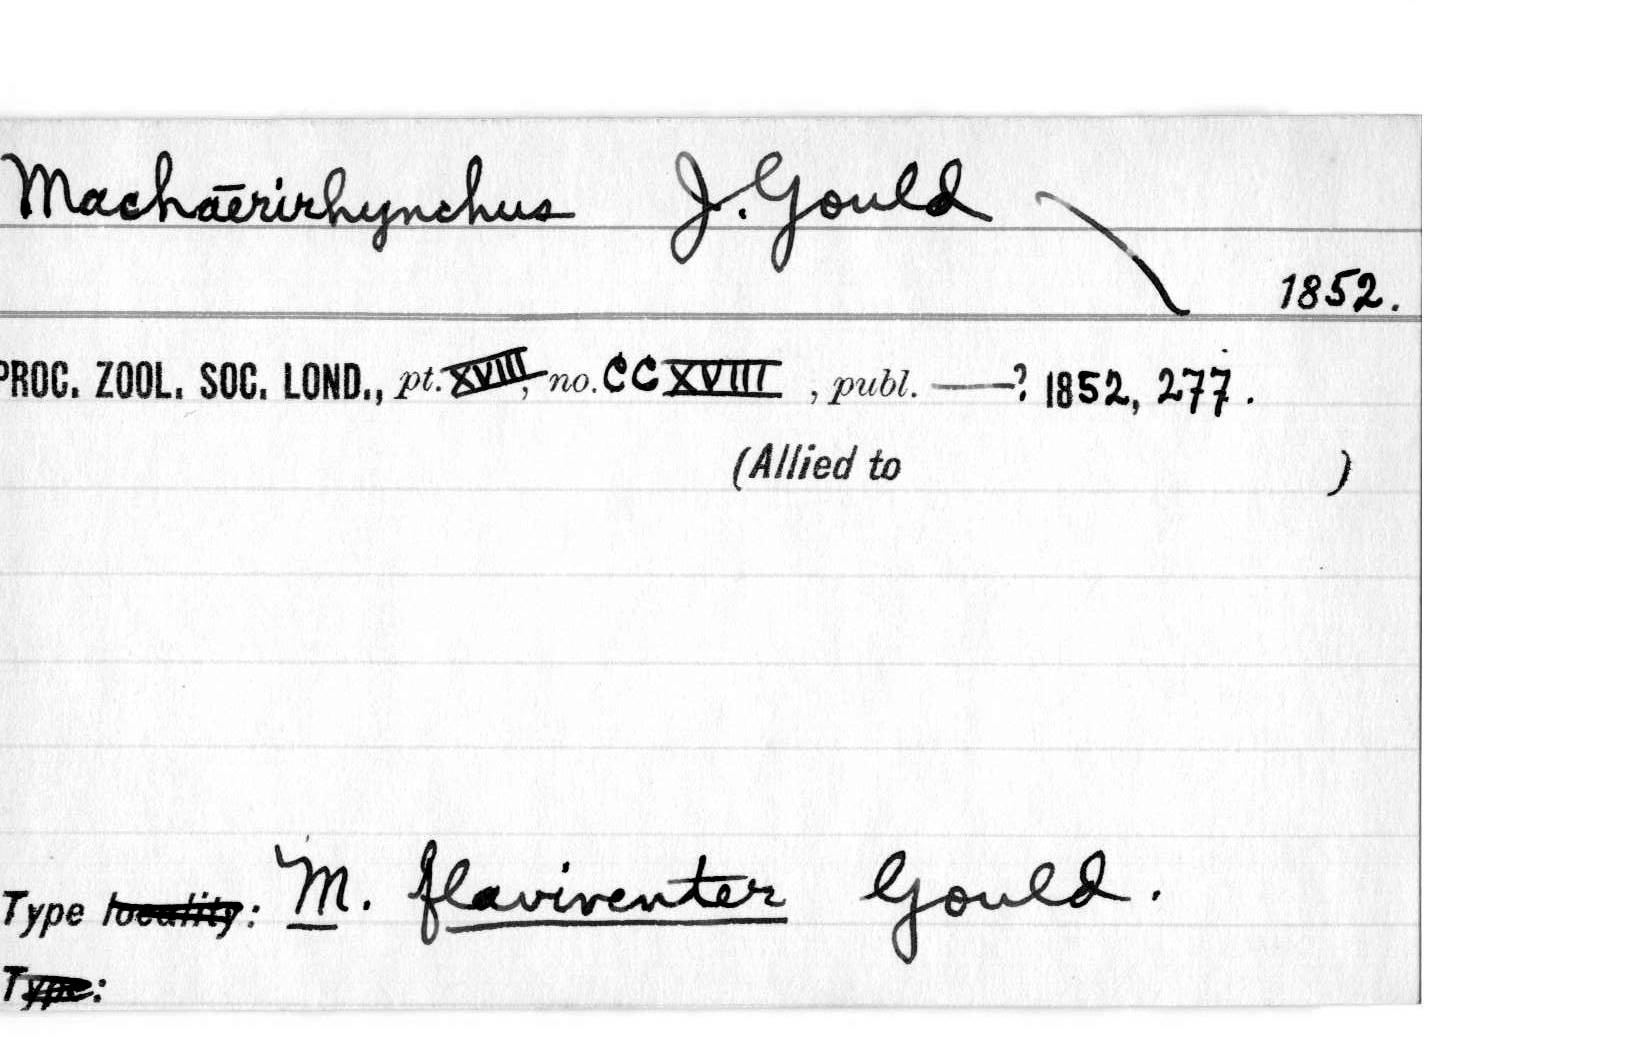 Machaērirhynchus J. Gould
1852.
PROC. ZOOL. SOC. LOND., pt. XVIII, no. CCXVIII , publ. ——? 1852, 277.
(Allied to )
Type locality: M. flaviventer Gould.
Type: